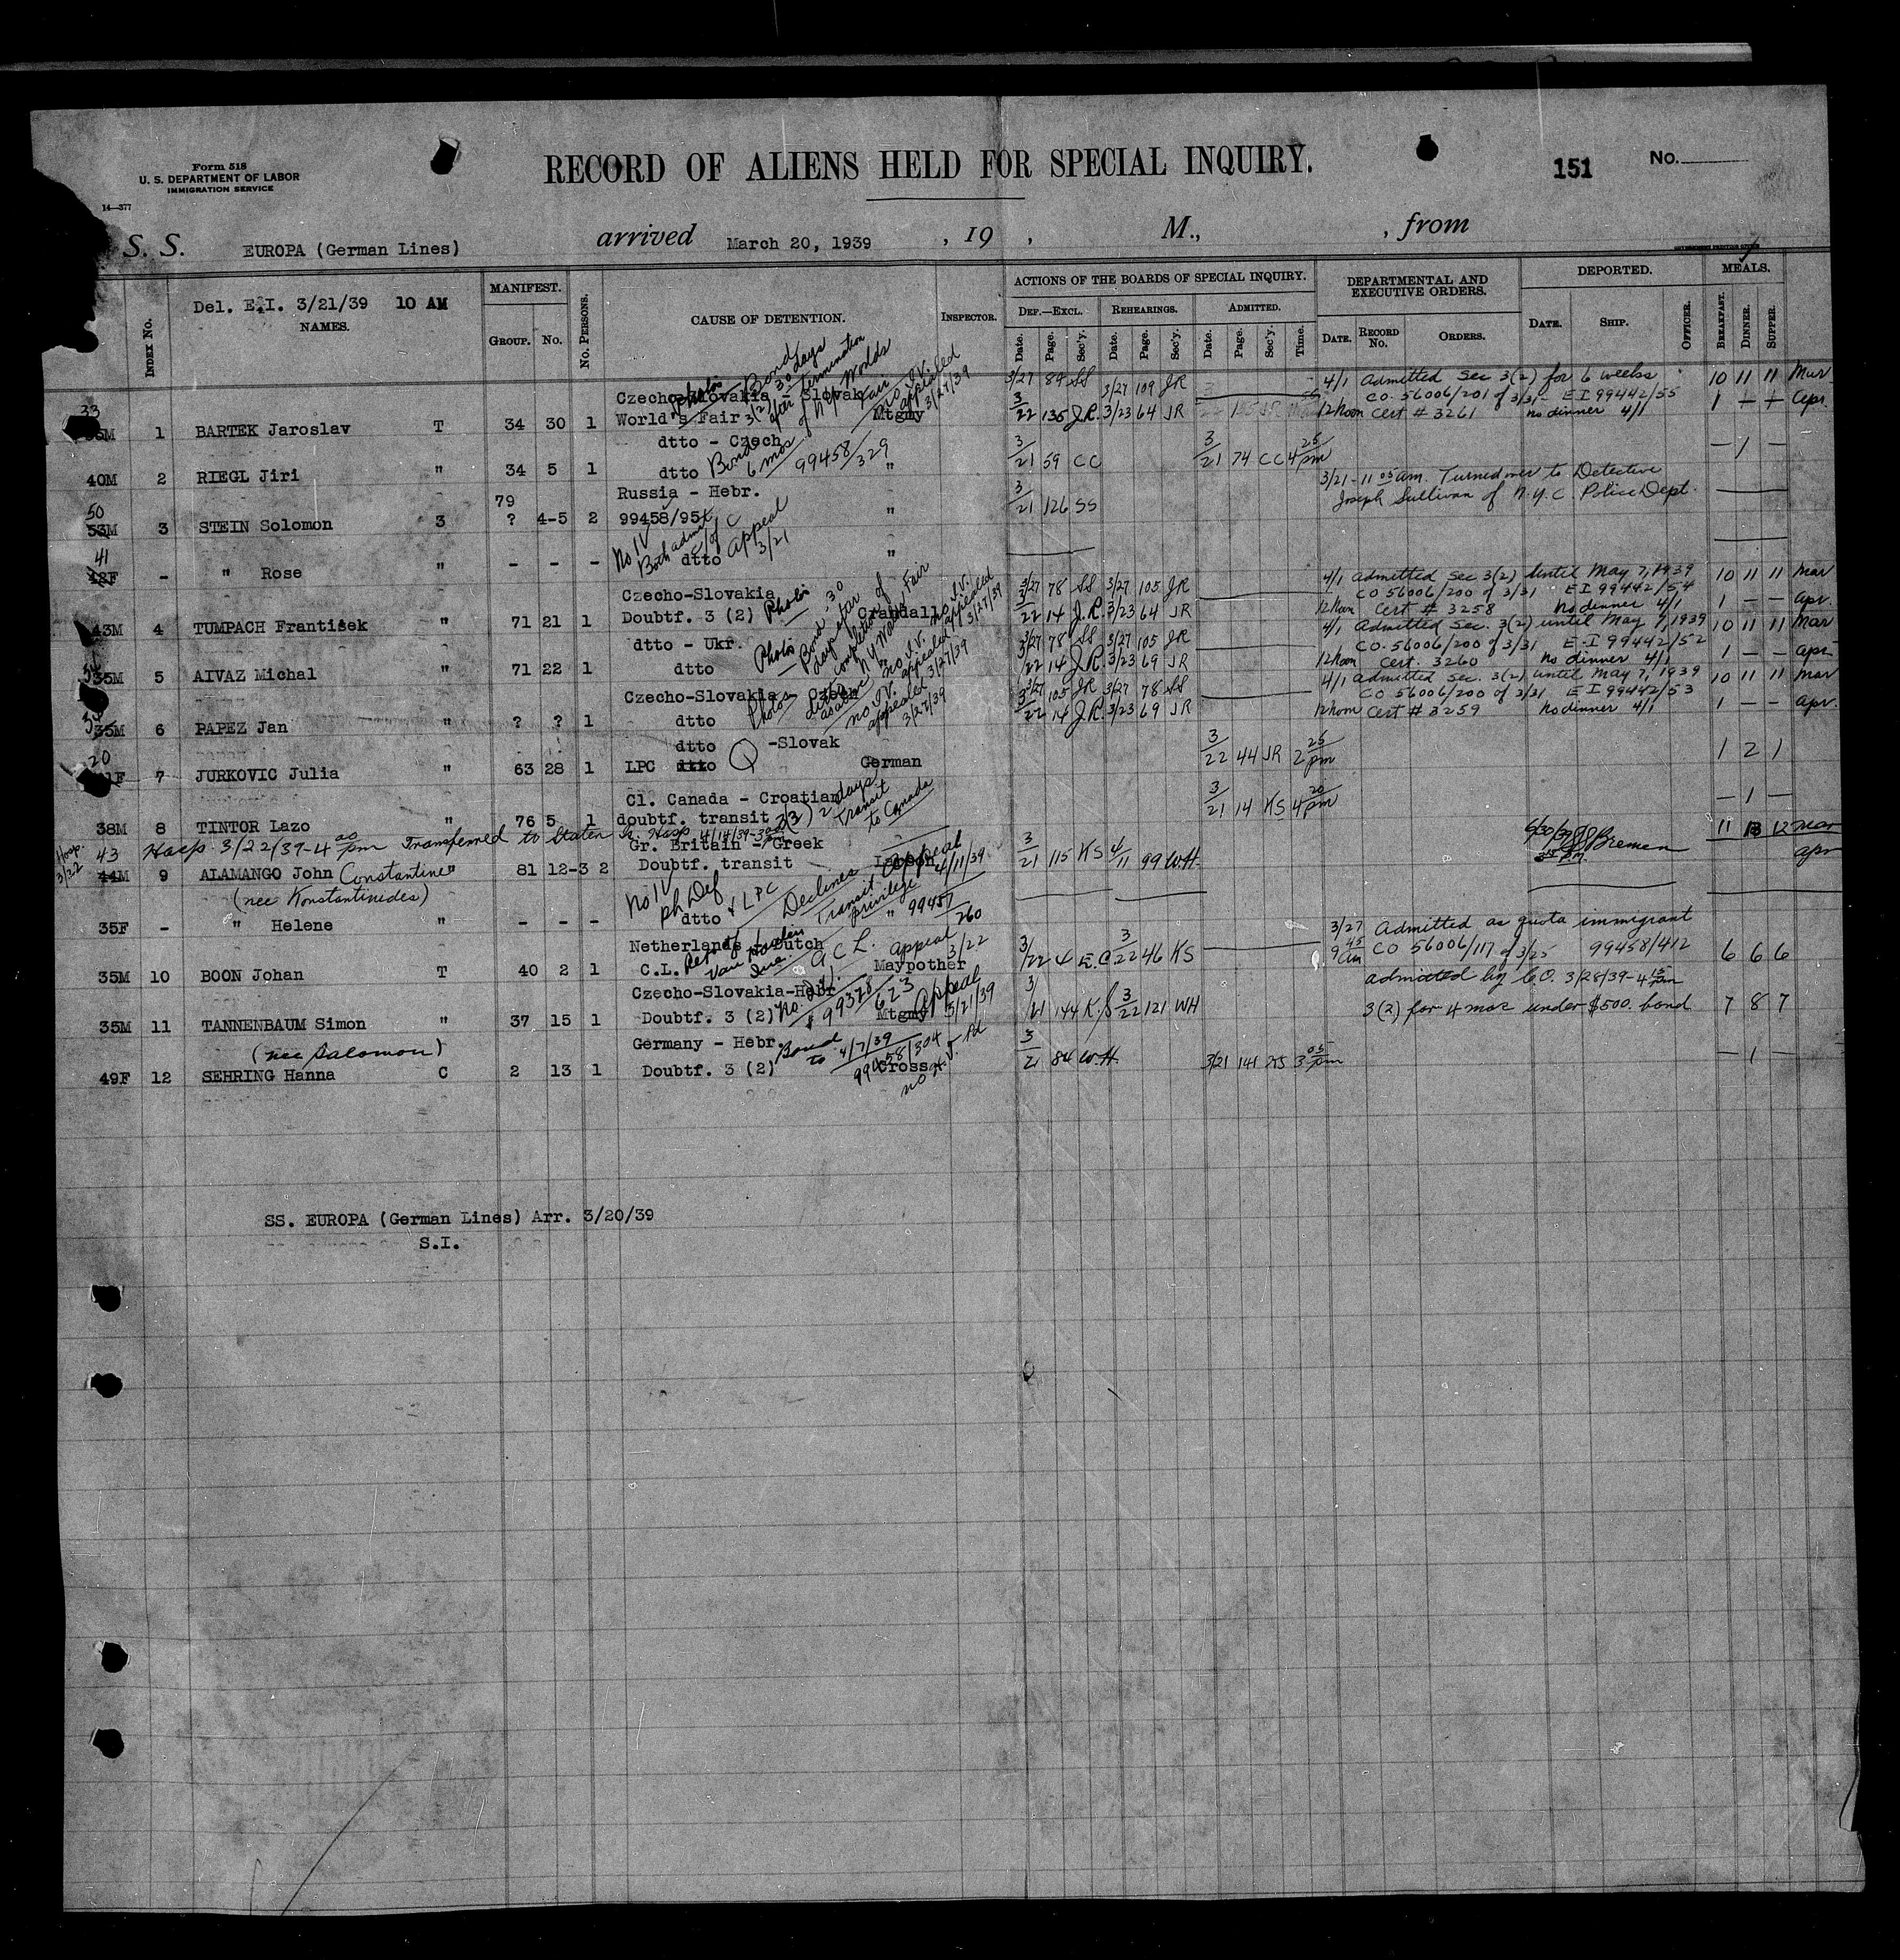 Form 518
U. S. DEPARTMENT OF LABOR
IMMIGRATION SERVICE
14—377
RECORD OF ALIENS HELD FOR SPECIAL INQUIRY.
151
No.
S. S. EUROPA (German Lines) arrived March 20, 1939 , 19 , M., , from
Del. E.I. 3/21/39 10 AM
INDEX No.
NAMES.
MANIFEST.
GROUP. No.
No. PERSONS.
CAUSE OF DETENTION.
INSPECTOR.
ACTIONS OF THE BOARDS OF SPECIAL INQUIRY.
DEF.—EXCL. REHEARINGS. ADMITTED.
Date. Page. Sec'y. Date. Page. Sec'y. Date. Page. Sec'y. Time.
DEPARTMENTAL AND EXECUTIVE ORDERS.
DATE. RECORD No. ORDERS.
DEPORTED.
DATE. SHIP. OFFICER.
MEALS.
BREAKFAST. DINNER. SUPPER.
Czecho-Slovakia - Slovak 3/27 84 SS 3/27 109 JR 4/1 Admitted Sec 3(2) for 6 weeks 10 11 11 Mar
CO. 56006/201 of 3/31 - EI 99442/55
33 1 BARTEK Jaroslav T 34 30 1 World's Fair Mtgmy 3/22 135 J.R. 3/23 64 JR 12 Noon Cert # 3261 no dinner 4/1 1 — — Apr.
Photos Bond 30 days after termination of N.Y. Worlds Fair no I.V. appealed 3/27/39
dtto - Czech
40M 2 RIEGL Jiri " 34 5 1 dtto Bond 6 mos 99458/329 " 3/21 59 CC 3/21 74 CC 4 25 pm — 1 —
3/21 - 11 05 am. Turned over to Detective
Joseph Sullivan of N.Y.C. Police Dept.
Russia - Hebr.
50 53M 3 STEIN Solomon 3 79 ? 4-5 2 99458/95 " 3/21 126 SS
No IV Both admit c/o C Appeal 3/21
41 42F - " Rose " - - - dtto "
Czecho-Slovakia 3/27 78 SS 3/27 105 JR 4/1 admitted Sec 3(2) until May 7, 1939 10 11 11 Mar
CO 56006/200 of 3/31 EI 99442/54
43M 4 TUMPACH František " 71 21 1 Doubtf. 3 (2) Photos Crandall 3/22 14 J.R. 3/23 64 JR 12 Noon Cert # 3258 No dinner 4/1 1 — — apr.
Bond - 30 days after completion of N.Y. Worlds Fair no I.V. appealed 3/27/39
dtto - Ukr. 3/27 78 SS 3/27 105 JR 4/1 Admitted Sec. 3(2) until May 7, 1939 10 11 11 Mar
CO. 56006/200 of 3/31 E.I 99442/52
35M 5 AIVAZ Michal " 71 22 1 dtto Photos 3/22 14 J.R. 3/23 69 JR 12 Noon Cert. 3260 No dinner 4/1 1 — — apr-
no I.V. appealed 3/27/39
Czecho-Slovakia - Czech 3/27 105 JR 3/27 78 SS 4/1 admitted Sec. 3(2) until May 7, 1939 10 11 11 mar
CO 56006/200 of 3/31 EI 99442/53
35M 6 PAPEZ Jan " ? ? 1 dtto Photos ditto as above no I.V. appealed 3/27/39 3/22 14 J.R. 3/23 69 JR 12 Noon Cert # 3259 No dinner 4/1 1 — — apr.
dtto -Slovak
20 7 JURKOVIC Julia " 63 28 1 LPC dtto Q German 3/22 44 JR 2 25 pm 1 2 1
Cl. Canada - Croatian
38M 8 TINTOR Lazo " 76 5 1 doubtf. transit 3(3) 2 days Transit to Canada 3/21 14 KS 4 20 pm — 1 —
Hosp. 3/22/39 - 4 00 pm Transferred to Staten Is. Hosp 4/14/39 - 3
Gr. Britain - Greek
Hosp. 3/22
43 44M 9 ALAMANGO John Constantine " 81 12-3 2 Doubtf. transit 3/21 115 KS 4/11 99 W.H. 6/30/39 SS Bremen 11 13 12 mar
apr
(nee Konstantinides)
No IV Ph Def & LPC Declines Transit privilege appeal 4/11/39
35F - " Helene " - - - dtto " 99457/260
Netherlands - Dutch 3/27 Admitted as quota immigrant
9 45 am CO 56006/117 of 3/25 99458/412
35M 10 BOON Johan T 40 2 1 C.L. A C L. appeal 3/22 Maypother 3/22 4 E.C. 3/22 46 KS 6 6 6
Czecho-Slovakia-Hebr admitted by C.O. 3/28/39 - 4 15 pm
35M 11 TANNENBAUM Simon " 37 15 1 Doubtf. 3 (2) 99378/623 Mtgmy Appeal 3/21/39 3/21 144 K.S 3/22 121 WH 3(2) for 4 mos under $500. bond 7 8 7
(nee Salomon)
Germany - Hebr.
49F 12 SEHRING Hanna C 2 13 1 Doubtf. 3 (2) Bond to 4/7/39 99458/304 Cross 3/21 84 W.H. 3/21 141 3 05 pm — 1 —
SS. EUROPA (German Lines) Arr. 3/20/39
S.I.